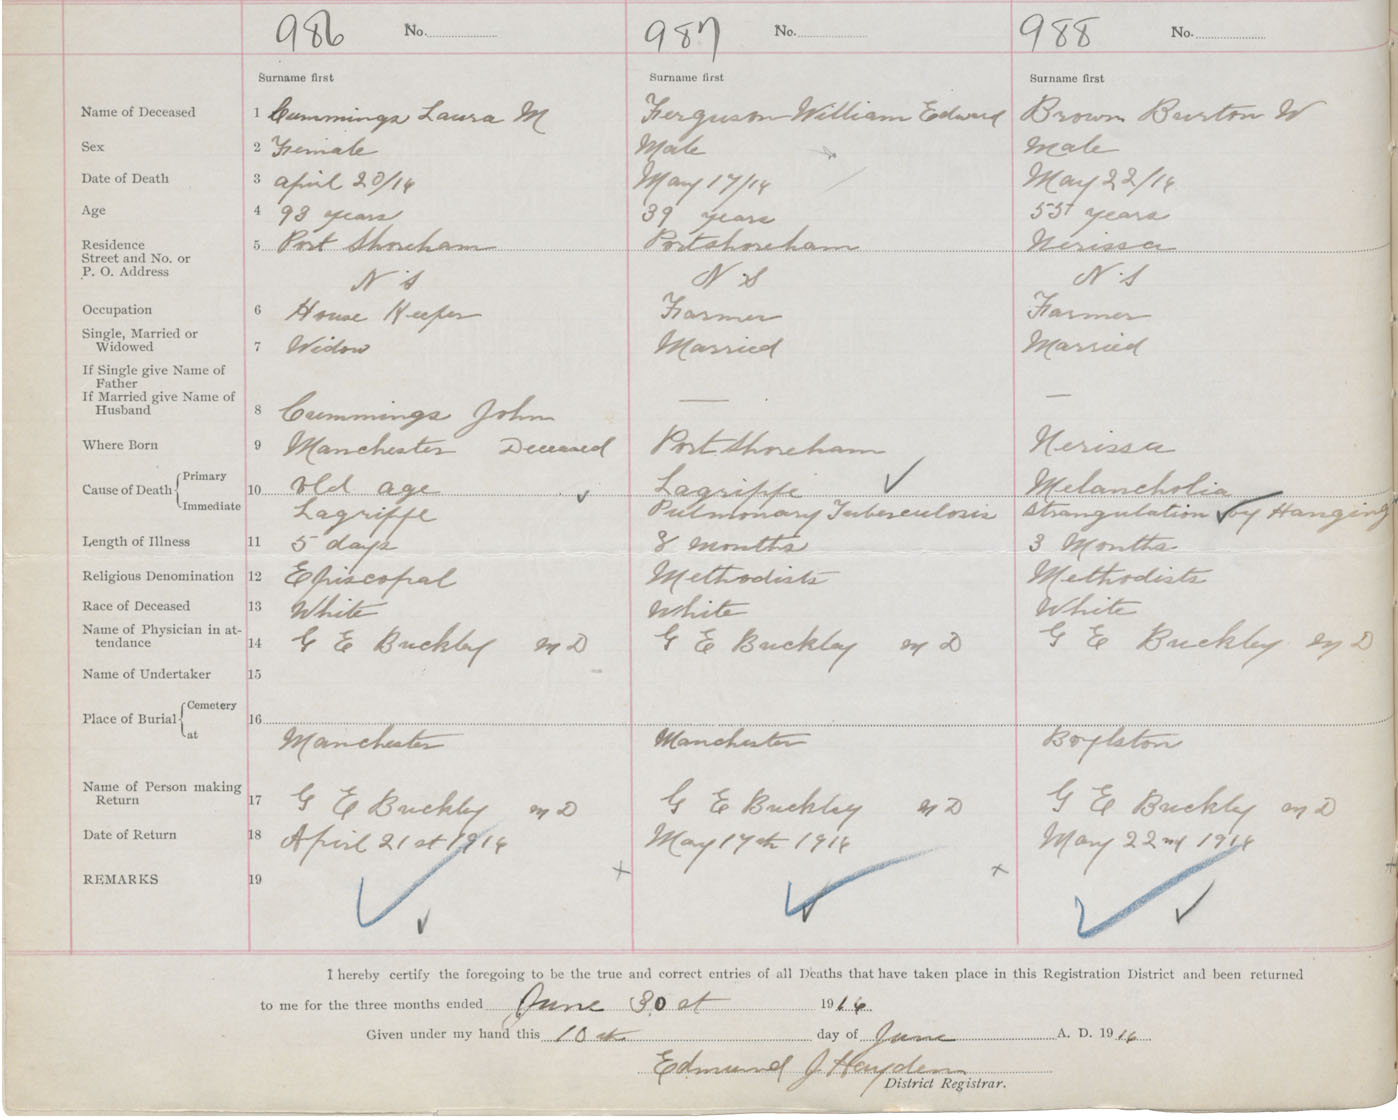 986 No. 987 No. 988 No.
Surname first Surname first Surname first
Name of Deceased 1 Cummings Laura M Ferguson William Edward Brown Burton W
Sex 2 Female Male Male
Date of Death 3 April 20/16 May 17/16 May 22/16
Age 4 93 years 39 years 55 years
Residence 5 Port Shoreham Portshoreham Nerissa
Street and No. or
P. O. Address N S N S N S
Occupation 6 House Keeper Farmer Farmer
Single, Married or
Widowed 7 Widow Married Married
If Single give Name of
Father
If Married give Name of
Husband 8 Cummings John — —
Where Born 9 Manchester Deceased Port Shoreham Nerissa
Cause of Death Primary 10 Old age Lagrippe Melancholia
Immediate Lagriffe Pulmonary Tuberculosis Strangulation by Hanging
Length of Illness 11 5 days 8 months 3 Months
Religious Denomination 12 Episcopal Methodists Methodists
Race of Deceased 13 White White White
Name of Physician in at-
tendance 14 G E Buckley M D G E Buckley M D G E Buckley M D
Name of Undertaker 15
Place of Burial Cemetery 16
at Manchester Manchester Boylston
Name of Person making
Return 17 G E Buckley M D G E Buckley M D G E Buckley M D
Date of Return 18 April 21st 1916 May 17th 1916 May 22nd 1916
REMARKS 19
I hereby certify the foregoing to be the true and correct entries of all Deaths that have taken place in this Registration District and been returned
to me for the three months ended June 30st 1916
Given under my hand this 10th day of June A. D. 1916
Edmund J Hayden
District Registrar.